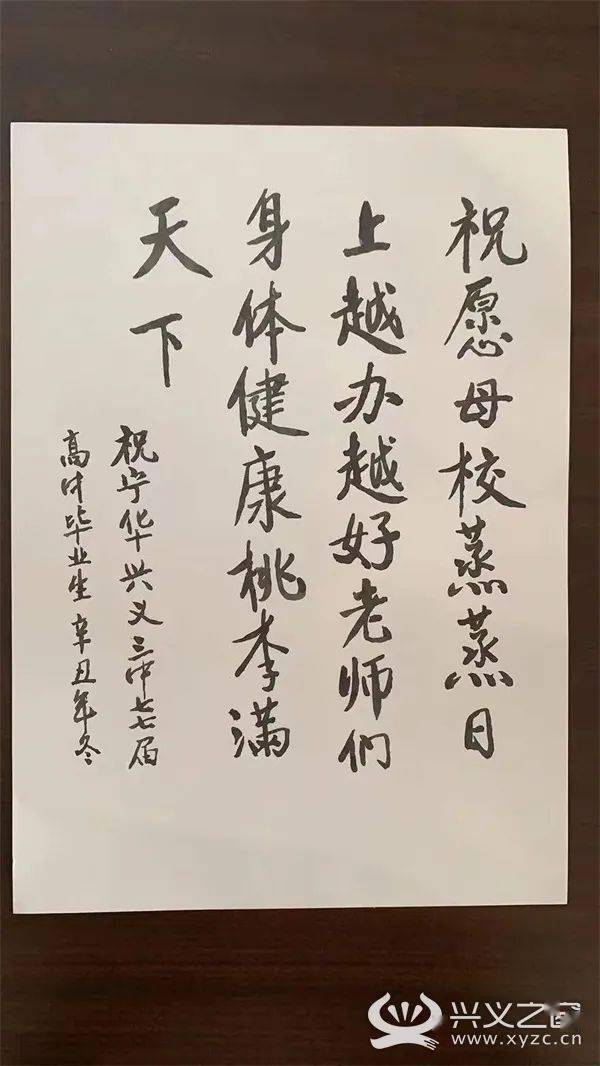 祝愿母校蒸蒸日
上越办越好老师们
身体健康桃李满
天下
祝宁华兴义三中七七届
高中毕业生辛丑年冬
兴义之
www.xyzc.cn